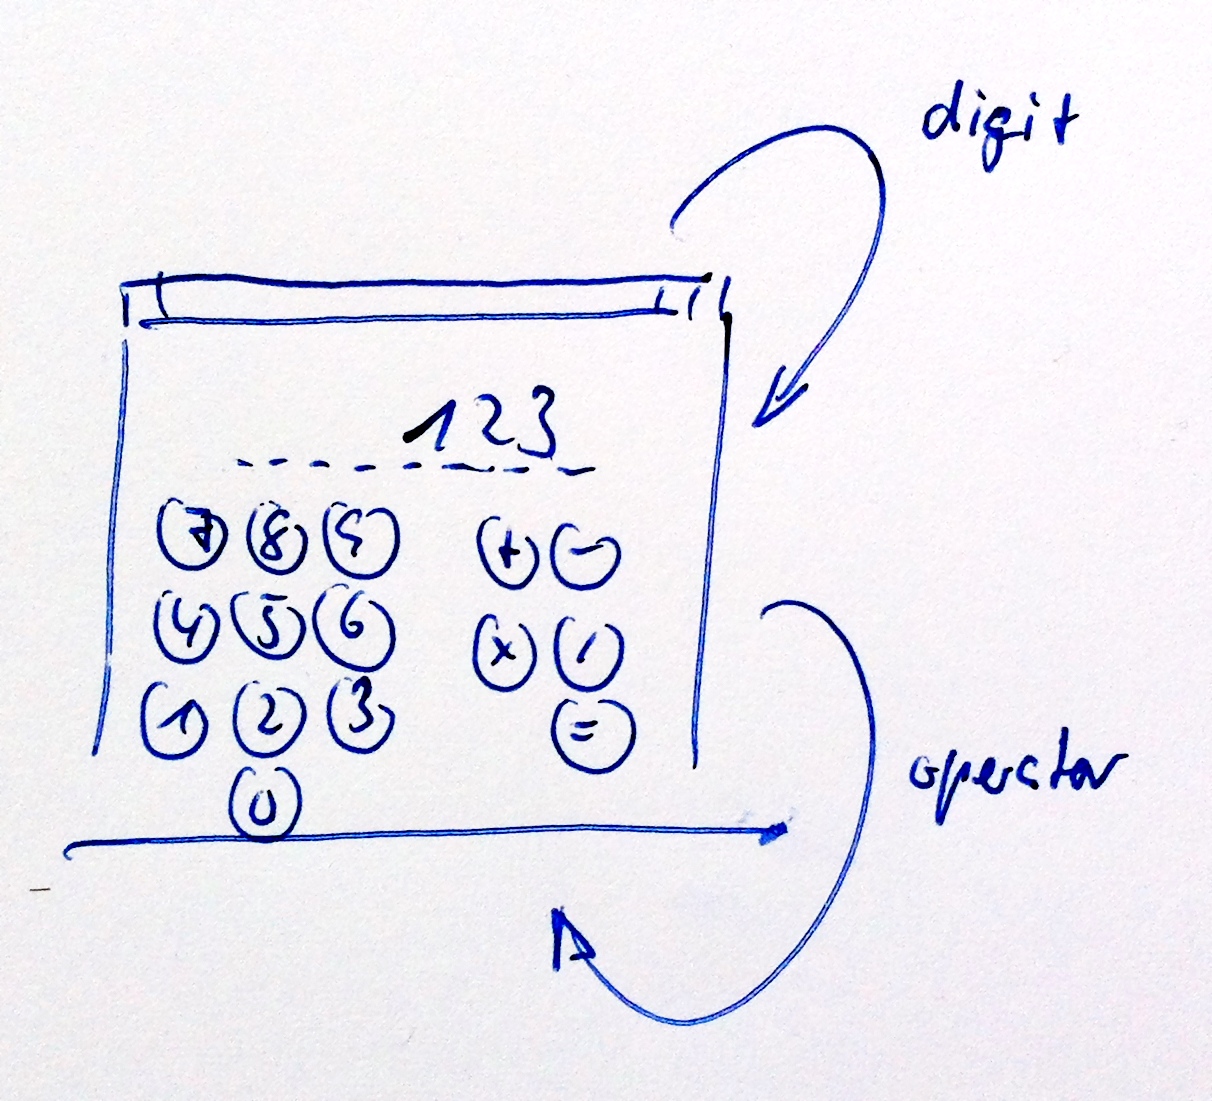 digit
123
7 8 9 + -
4 5 6 x /
1 2 3 =
0
operator